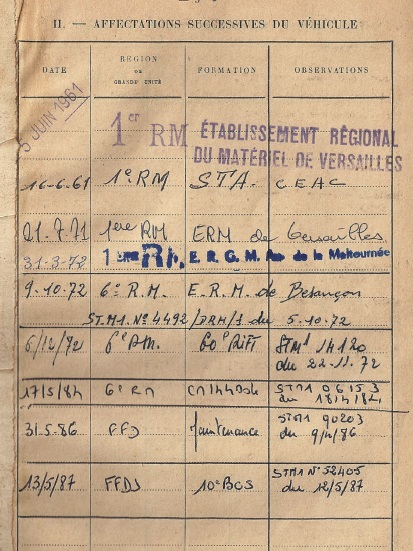 II. — AFFECTATIONS SUCCESSIVES DU VÉHICULE
DATE RÉGION ou GRANDE UNITÉ FORMATION OBSERVATIONS
5 JUIN 1961 1er RM ÉTABLISSEMENT RÉGIONAL
DU MATÉRIEL DE VERSAILLES
16-6-61 1e RM STA. CEAC
21.7.71 1ère RM ERM de Versailles
31-3-72 1ère RM. E. R. G. M. de la Maltournée
9-10-72 6e R.M. E.R.M. de Besançon
ST.M1. No 4492/DRM/1 du 5.10-72
6/12/72 6e RM. 60e STM1 14120
du 22-11.72
17/5/84 6e RM STM1 06153
du 18/4/84
31.5.86 FFD Maintenance STM1 90203
du 9/4/86
13/5/87 FFDJ 10e BCS STM1 No 52405
du 12/5/87